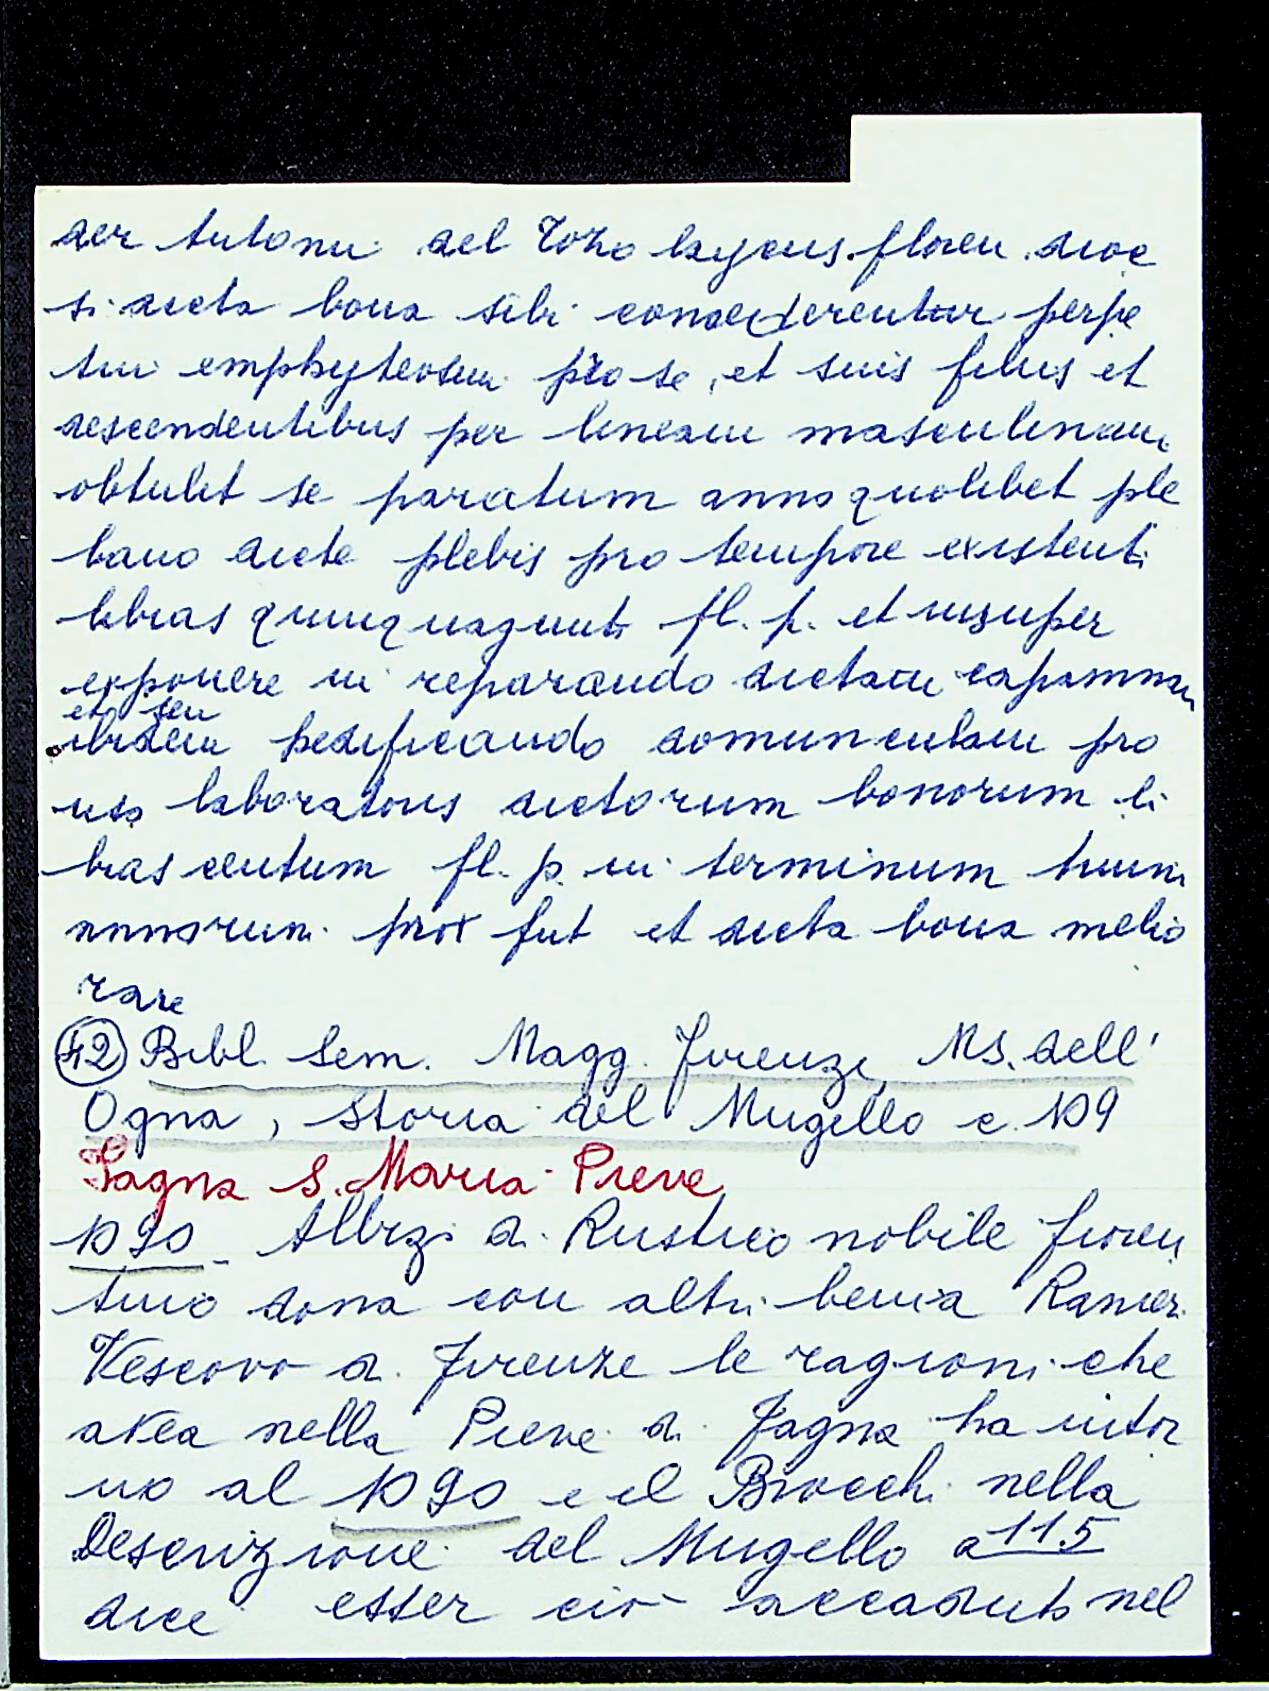 der Antoni del Rozo laycus floren. dioc
si dicta bona sibi concederentur perpe
tui emphyteosim pro se, et suis filiis et
descendentibus per lineam masculinam,
obtulit se paratum anno quolibet ple
bano dicte plebis pro tempore existenti
libras quinquaginti fl. p. et insuper
exponere in reparando dictam capannam
et seu
ibidem hedificando domunculam pro
uso laboratoris dictorum bonorum li
bras centum fl. p. in terminum trium
annorum prox fut et dicta bona melio
rare
42 Bibl. Sem. Magg. Firenze, Ms. dell'
Ogna, Storia del Mugello c. 109
Fagna S. Maria Pieve
1090 - Albizi di Rustico nobile fioren
tino dona con altri beni a Ranieri
Vescovo di Firenze le ragioni che
avea nella Pieve di Fagna ha intor
no al 1090 e il Brocchi nella
Descrizione del Mugello a 115
dice esser ciò accaduto nel